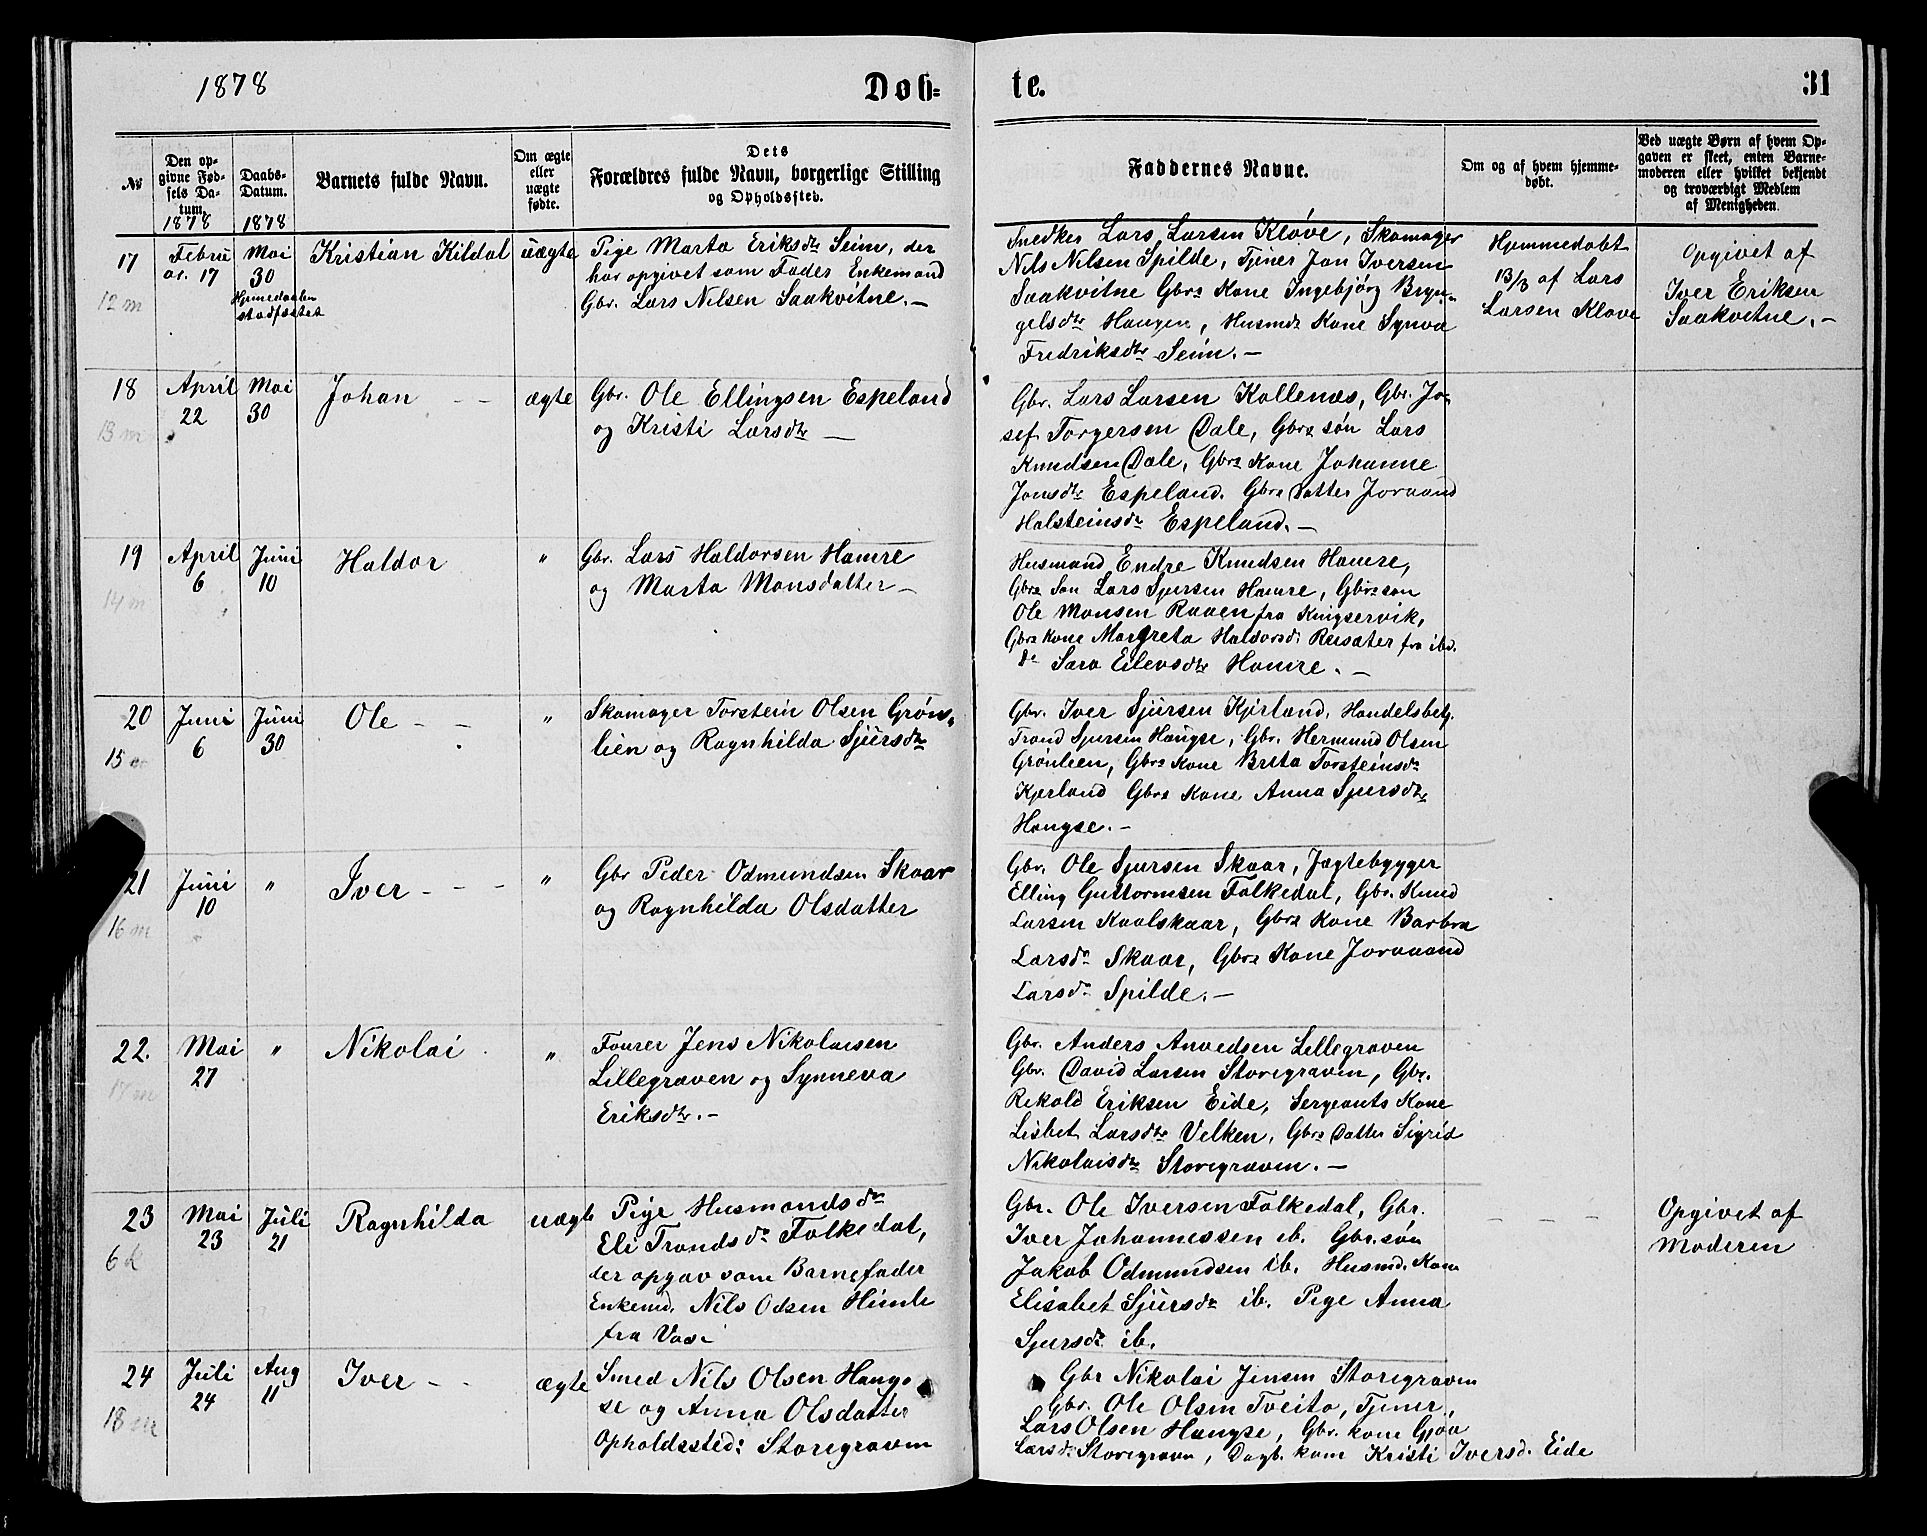 1878
Døb=
te.
31
No
Den op-
givne Fød-
sels Da-
tum.
1878
Daabs-
Datum.
1878
Barnets fulde Navn.
Om ægte
eller
uægte
fødte.
Dets
Forældres fulde Navn, borgerlige Stilling
og Opholdssted.
Faddernes Navne.
Om og af hvem hjemme-
døbt.
Ved uægte Børn af hvem Op-
gaven er skeet, enten Barne-
moderen eller hvilket bekjendt
og troværdigt Medlem
af Menigheden.
17
12 m
Febru
ar. 17
Mai
30
Hjemedaaben
stadfæstet
Kristian Kildal
uægte
Pige Marta Eriksdtr Seim, der
har opgivet som Fader Enkemand
Gbr. Lars Nilsen Saakvitne. —
Snedker Lars Larsen Kløve, Skomager
Nils Nilsen Spilde, Tjener Jon Iversen
Saakvitne Gbrs Kone Ingebjørg Bryn-
gelsdtr Haugen, Husmds Kone Synva
Fredriksdtr Seim. —
Hjemmedøbt
13/3 af Lars
Larsen Kløve
Opgivet af
Iver Eriksen
Saakvitne. —
18
13 m
April
22
Mai
30
Johan — —
ægte
Gbr. Ole Ellingsen Espeland
og Kristi Larsdtr —
Gbr. Lars Larsen Kollenæs, Gbr. Jo-
sef Torgersen Dale, Gbrs søn Lars
Knudsen Dale, Gbrs Kone Johanne
Jonsdtr Espeland. Gbrs Datter Joraand
Halsteinsdr Espeland. —
19
14 m
April
6
Juni
10
Haldor
"
Gbr. Lars Haldorsen Hamre
og Marta Monsdatter —
Husmand Endre Knudsen Hamre,
Gbrs Søn Lars Sjursen Hamre, Gbrs søn
Ole Monsen Raaen fra Kingservik,
Gbrs kone Margreta Haldorsdr Reisæter fra ibd.
do Sara Eilevsdtr Hamre. —
20
15 m
Juni
6
Juni
30
Ole — —
"
Skomager Torstein Olsen Grøn-
lien og Ragnhilda Sjursdtr
Gbr. Iver Sjursen Kjerland, Handelsbetj.
Trond Sjursen Haugse, Gbr. Hermund Olsen
Grønlien, Gbrs Kone Brita Torsteinsdr
Kjerland Gbrs Kone Anna Sjursdtr
Haugse. —
21
16 m
Juni
10
"
Iver — — —
"
Gbr Peder Odmundsen Skaar
og Ragnhilda Olsdatter
Gbr. Ole Sjursen Skaar, Jægtebygger
Elling Guttormsen Folkedal, Gbr. Knud
Larsen Kaalskaar, Gbrs Kone Barbra
Larsdr Skaar, Gbrs Kone Joraaand
Larsdr Spilde. —
22.
17 m
Mai
27
"
Nikolai
"
Fourer Jens Nikolaisen
Lillegraven og Synneva
Eriksdtr. —
Gbr. Anders Anvedsen Lillegraven
Gbr. David Larsen Storegraven, Gbr.
Rekold Eriksen Eide, Sergeants Kone
Lisbet Larsdtr Velken, Gbrs Datter Sigrid
Nikolaisdtr Storegraven. —
23
6 k
Mai
23
Juli
21
Ragnhilda
uægte
Pige Husmandsdr
Eli Trondsdr Folkedal,
der opgav som Barnefader
Enkemd. Nils Odsen Himle
fra Vors
Gbr. Ole Iversen Folkedal, Gbr.
Iver Johannessen ib. Gbr. søn
Jakob Odmundsen ib. Husmd. Kone
Elisabet Sjursdr ib. Pige Anna
Sjursdr ib.
— — —
Opgivet af
Moderen
24
18 m
Juli
24
Aug
11
Iver — —
ægte
Smed Nils Olsen Haug-
se og Anna Olsdatter
Opholdssted: Storegraven
Gbr Nikolai Jensen Storegraven
Gbr. Ole Olsen Tveito, Tjener,
Lars Olsen Haugse, Gbr. kone Gjøa
Larsdr Storegraven, Dagb. kone Kristi Iversd. Eide